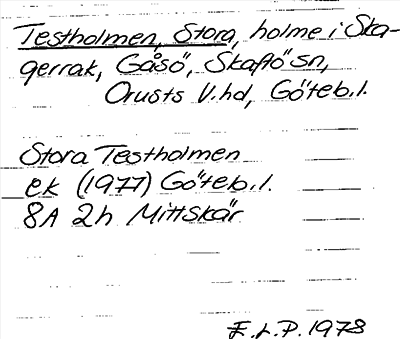 Testholmen, Stora, holme i Ska-
gerrak, Gåsö, Skaftö sn,
Orusts V.hd, Göteb.l.
Stora Testholmen
ek (1977) Göteb.l.
8A 2h Mittskär
F.L.P. 1978